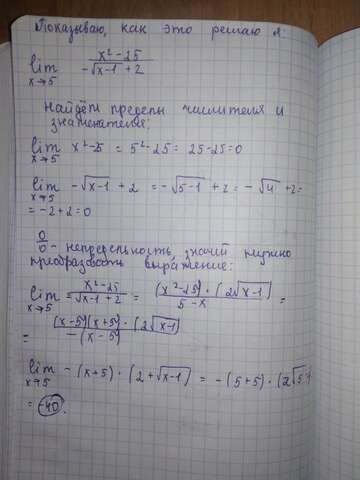 Показываю, как это решаю я:
lim x→5 (x²-25)/(-√x-1 + 2)
Найдём пределы числителя и
знаменателя:
lim x→5 x²-25 = 5²-25 = 25-25 = 0
lim x→5 -√x-1 + 2 = -√5-1 + 2 = -√4 + 2 =
= -2+2=0
0/0 - непредельность, значит нужно
преобразовать выражение:
lim x→5 = (x²-25)/(√x-1 + 2) = ((x²-25)·(2√x-1))/(5-x) =
= ((x-5)(x+5)·(2√x-1))/(-(x-5))
lim x→5 -(x+5)·(2+√x-1) = -(5+5)·(2√5-1
= -40.